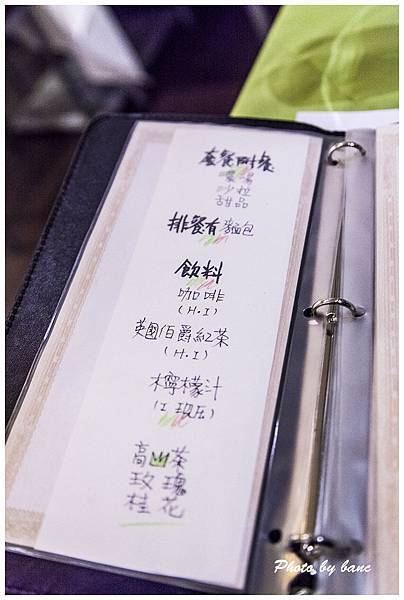 套餐附餐
濃湯
沙拉
甜品
排餐有麵包
飲料
咖啡
(H.I)
英國伯爵紅茶
(H.I)
檸檬汁
(I
高山茶
玫瑰
桂花
Photo by banc